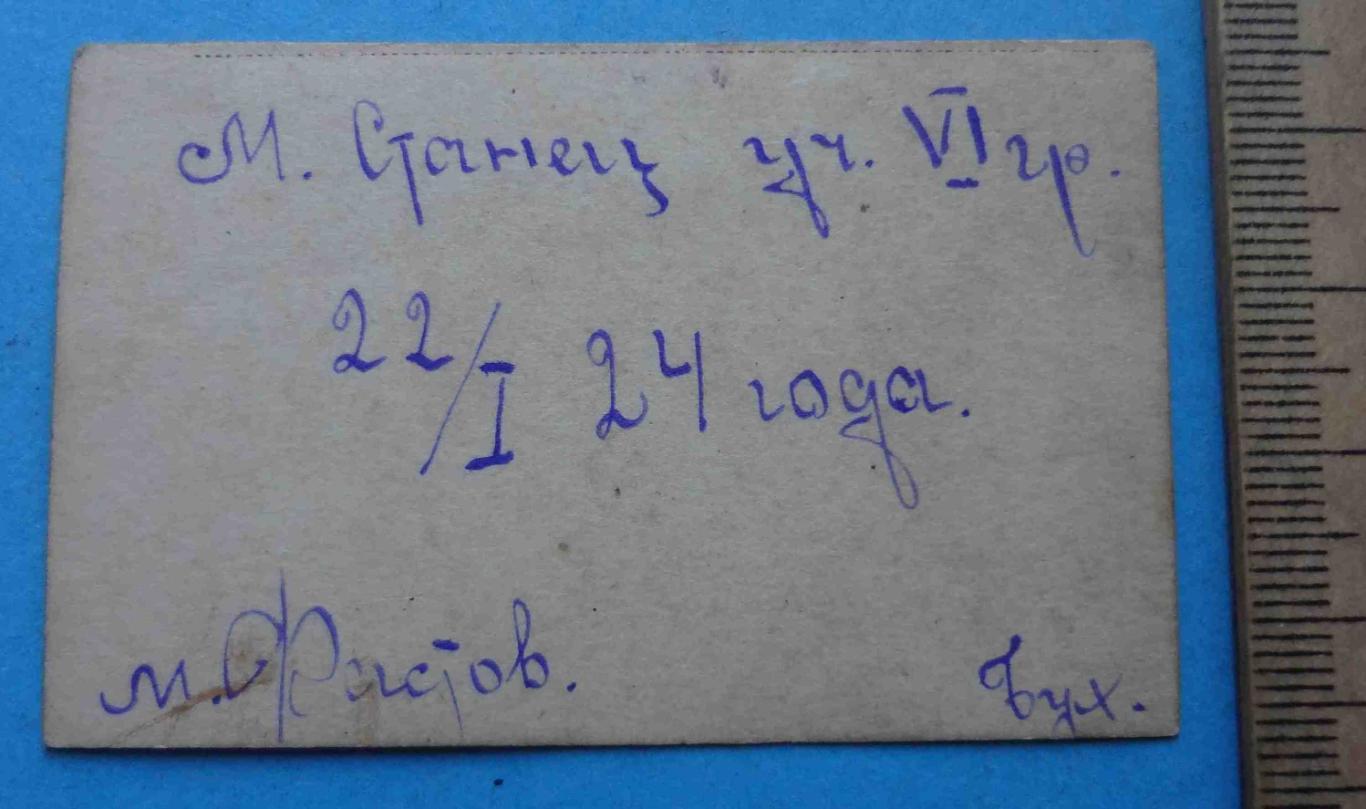 М. Станец уч. VI гр.
22/I 24 года.
м. Фастов. Бух.